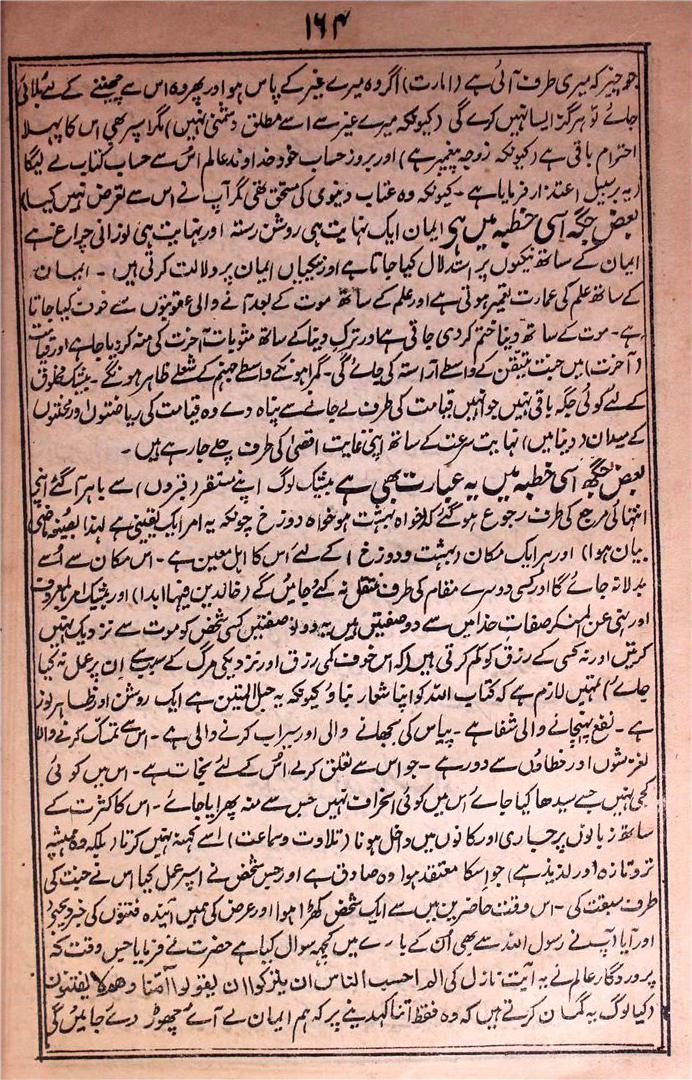 ۱۶۴
جو چیز کہ میری طرف آئی ہے (امارت) اگر وہ میرے غیر کے پاس ہو اور پھر وہ اس سے چھیننے کے لئے بلائی
جائے تو ہرگز ایسا نہیں کرے گی (کیونکہ میرے غیر سے اسے مطلق دشمنی نہیں) مگر اسپر بھی اس کا پہلا
احترام باقی ہے (کیونکہ زوجہ پیغمبر ہے) اور بروز حساب خود خداوند عالم اس سے حساب کتاب لے لیگا
(یہ برسبیل اعتذار فرمایا ہے۔ کیونکہ وہ عتاب دنیوی کی مستحق تھی مگر آپ نے اس سے تعرض نہیں کیا)
بعض جگہ اسی خطبہ میں ہی ایمان ایک نہایت ہی روشن رستہ اور نہایت ہی نورانی چراغ ہے
ایمان کے ساتھ نیکیوں پر استدلال کیا جاتا ہے اور نیکیاں ایمان پر دلالت کرتی ہیں۔ ایمان
کے ساتھ علم کی عمارت تعمیر ہوتی ہے اور علم کے ساتھ موت کے بعد آنے والی عقوبتوں سے خوف کیا جاتا
ہے۔ موت کے ساتھ دنیا ختم کردی جاتی ہے اور ترک دنیا کے ساتھ مثوبات آخرت کی منہ کردیا جاہے اور قیامت
(آخرت) میں جنت متیقن کے واسطے آراستہ کی جائے گی۔ گمراہونکے واسطے جہنم کے شعلے ظاہر ہونگے۔ بیشک مخلوق
کے لئے کوئی جگہ باقی نہیں جو انہیں قیامت کی طرف لے جانے سے پناہ دے وہ قیامت کی ریاضتوں اور محنتوں
کے میدان (دنیا میں) نہایت سرعت کے ساتھ اپنی غایت اقصیٰ کی طرف چلے جا رہے ہیں۔
بعض جگھ اسی خطبہ میں یہ عبارت بھی ہے بیشک لوگ اپنے مستقر (قبروں) سے باہر آگئے اپنی
انتہائی مرجع کی طرف رجوع ہوگئے خواہ بہشت ہو خواہ دوزخ چونکہ یہ امر ایک یقینی ہے لہذا بصیغہ ماضی
بیان ہوا) اور ہر ایک مکان (بہشت و دوزخ) کے لئے اس کا اہل معین ہے۔ اس مکان سے اُسے
بدلا نہ جائے گا اور کسی دوسرے مقام کی طرف منتقل نہ کئے جائیں گے (خالدین فیہا ابدا) اور بیشک امر بالمعروف
اور نہی عن المنکر صفات خدا میں سے دو صفتیں ہیں یہ دونو صفتیں کسی شخص کو موت سے نزدیک نہیں
کرتیں اور نہ کسی کے رزق کو کم کرتی ہیں (کہ اس خوف کمی رزق اور نزدیکی مرگ کے سبب سے ان پر عمل نہ کیا
جائے) تمہیں لازم ہے کہ کتاب اللہ کو اپنا شعار بناؤ کیونکہ یہ حبل المتین ہے ایک روشن اور ظاہر نور
ہے۔ نفع پہنچانے والی شفا ہے۔ پیاس کی بجھانے والی اور سیراب کرنے والی ہے۔ اس سے تمسک کرنے والا
لغزشوں اور خطاؤں سے دور ہے۔ جو اس سے تعلق کرے اُس کے لئے نجات ہے۔ اس میں کوئی
کجی نہیں جسے سیدھا کیا جائے اس میں کوئی انحراف نہیں جس سے منہ پھرایا جائے۔ اس کا کثرت کے
ساتھ زبانوں پر جاری اور کانوں میں داخل ہونا (تلاوت و سماعت) اسے کہنہ نہیں کرتا (بلکہ وہ ہمیشہ
تر و تازہ اور لذیذ ہے) جو اسکا معتقد ہوا وہ صادق ہے اور جس شخص نے اسپر عمل کیا اس نے جنت کی
طرف سبقت کی۔ اس وقت حاضرین میں سے ایک شخص کھڑا ہوا اور عرض کی ہمیں آیندہ فتنوں کی خبر دیجیئے
اور آیا آپ نے رسول اللہ سے بھی اُن کے بارے میں کچھ سوال کیا ہے حضرت نے فرمایا جس وقت کہ
پروردگار عالم نے یہ آیت نازل کی الم احسب الناس ان یترکوا ان یقولوا آمنا وھم لا یفتنون
(کیا لوگ یہ گمان کرتے ہیں کہ وہ فقط اتنا کہدینے پر کہ ہم ایمان لے آئے چھوڑ دے جائیں گی